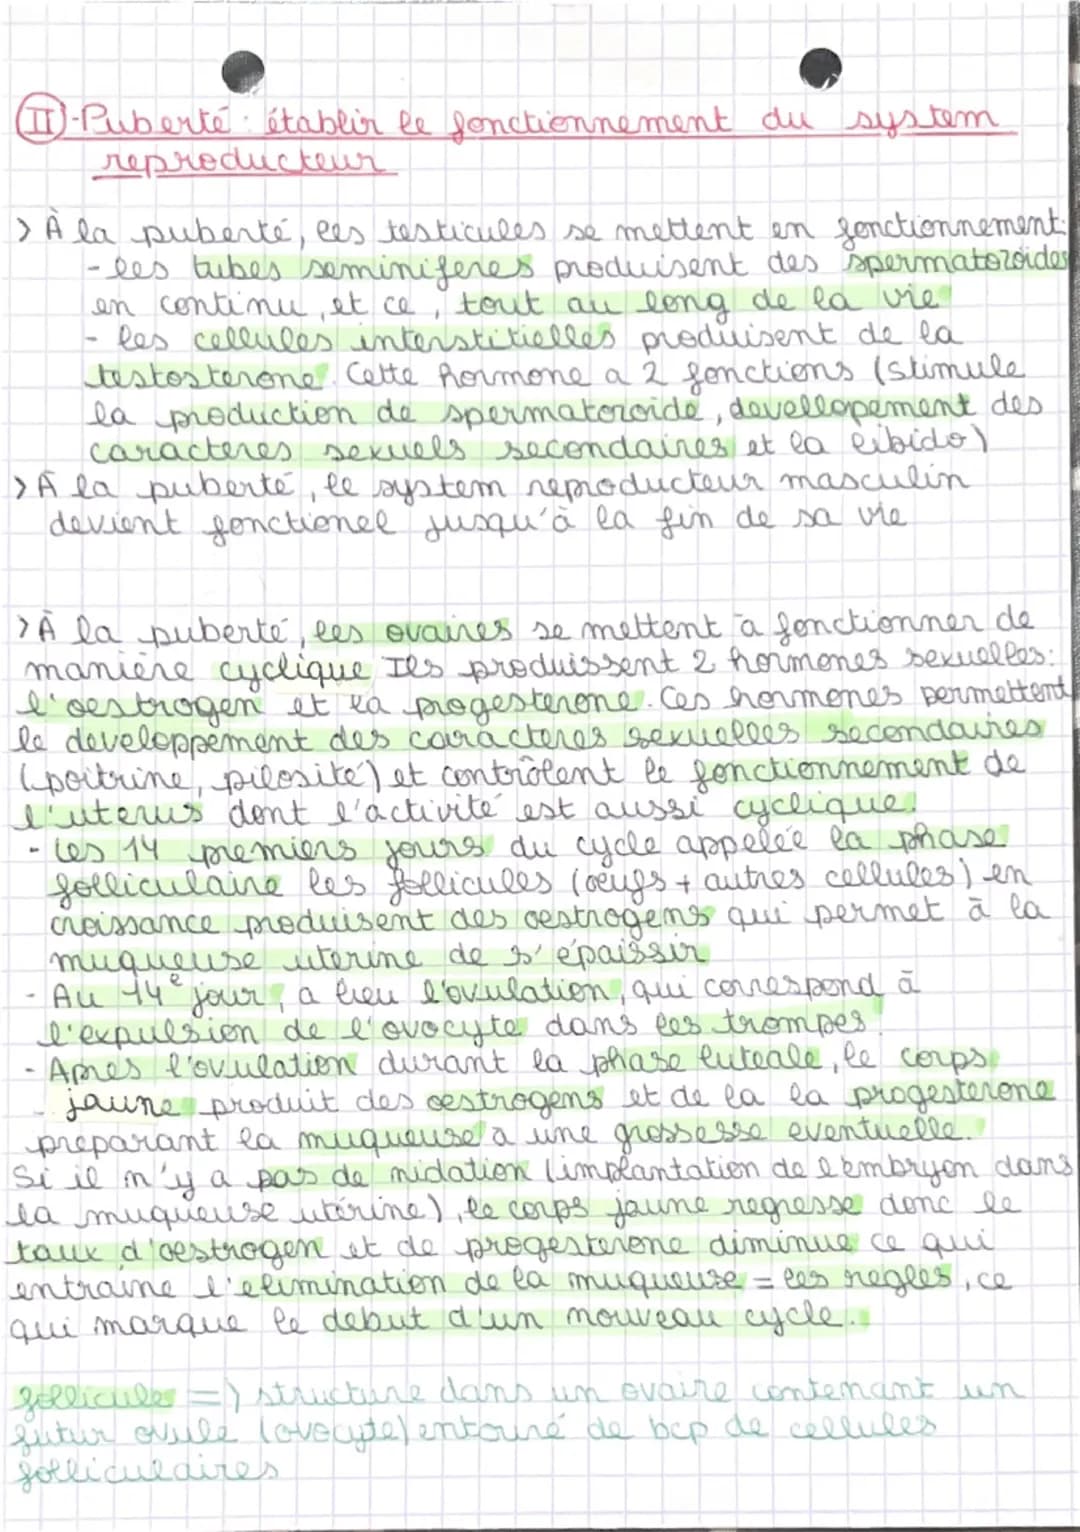 II-Puberté : établir le fonctionnement du system
reproducteur
> À la puberté, les testicules se mettent en fonctionnement:
- les tubes seminiferes produisent des spermatozoides
en continu, et ce, tout au long de la vie
- les cellules interstitielles produisent de la
testosterone. Cette hormone a 2 fonctions (stimule
la production de spermatozoide, devellopement des
caracteres sexuels secondaires et la libido)
> À la puberté, le system reproducteur masculin
devient fonctionel jusqu'à la fin de sa vie
> À la puberté, les ovaires se mettent à fonctionner de
manière cyclique Ils produissent 2 hormones sexuelles:
l'oestrogen et la progesterone. Ces hormones permettent
le developpement des caracteres sexuelles secondaires
(poitrine, pilosité) et contrôlent le fonctionnement de
l'uterus dont l'activité est aussi cyclique.
- Les 14 premiers jours du cycle appelée la phase
folliculaire les follicules (oeufs + autres cellules) en
croissance produisent des oestrogens qui permet à la
muqueuse uterine de s'épaissir
- Au 14e jour, a lieu l'ovulation, qui correspond à
l'expulsion de l'ovocyte dans les trompes.
- Apres l'ovulation durant la phase luteale, le corps
jaune produit des oestrogens et de la la progesterone
préparant la muqueuse a une grossesse eventuelle.
Si il n'y a pas de nidation (implantation de l'embryon dans
la muqueuse utérine), le corps jaune regresse donc le
taux d'oestrogen et de progesterone diminue ce qui
entraine l'elimination de la muqueuse = les regles, ce
qui marque le debut d'un nouveau cycle.
follicule => structure dans un ovaire contenant un
futur ovule (ovocyte) entouré de bcp de cellules
folliculaires